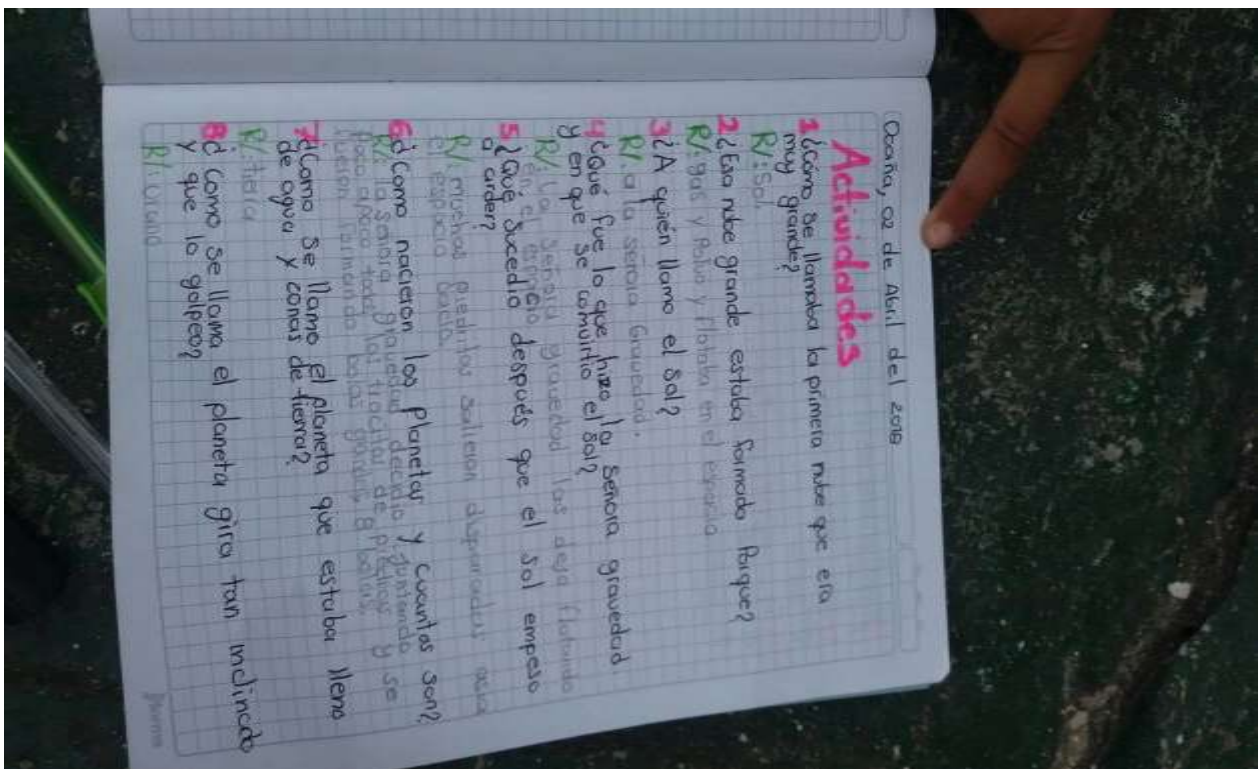 Ocaña, 02 de Abril del 2018
Actividades
1 ¿Cómo se llamaba la primera nube que era
muy grande?
R/: Sol
2 ¿Esa nube grande estaba formada Porque?
R/: gas y Polvo y flotaba en el espacio
3 ¿A quién llamo el sol?
R/ a la señora Gravedad.
4 ¿Qué fue lo que hizo la señora gravedad.
y en que se convirtio el sol?
R/: La señora gravedad las deja flotando
en el espacio
5 ¿Qué sucedio después que el sol empeso
a arder?
R/ muchas piedritas salieron disparadas
el espacio
6 ¿Como nacieron los planetas y cuantos son?
R/: la señora gravedad decidio juntando
poco apoco todos los de piedras y se
fueron formando bolas 8 bolas.
7 ¿Como se llamo el planeta que estaba lleno
de agua y conas de tierra?
R/: tiera
8 ¿Como se llama el planeta gira tan inclinado
y que lo golpeo?
R/: Urano